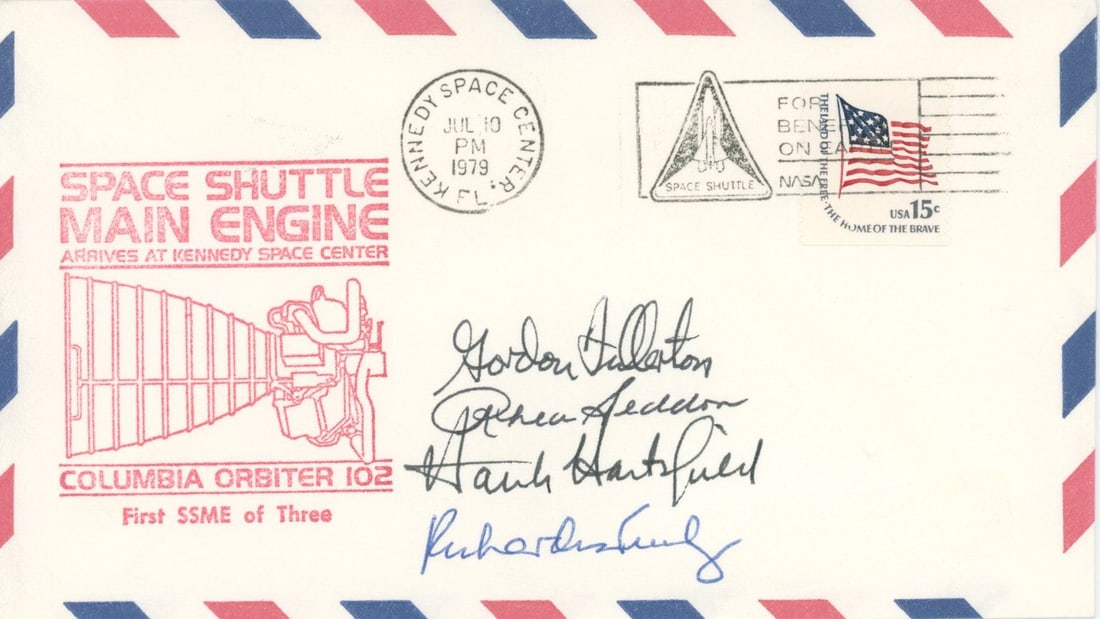 KENNEDY SPACE CENTER, FL.
JUL 10
PM
1979
SPACE SHUTTLE
FOR
BENE
ON EA
NASA
THE LAND OF THE FREE·THE HOME OF THE BRAVE
USA 15c
SPACE SHUTTLE
MAIN ENGINE
ARRIVES AT KENNEDY SPACE CENTER
COLUMBIA ORBITER 102
First SSME of Three
Gordon Fullerton
Rhea Seddon
Hank Hartsfield
Richard Truly